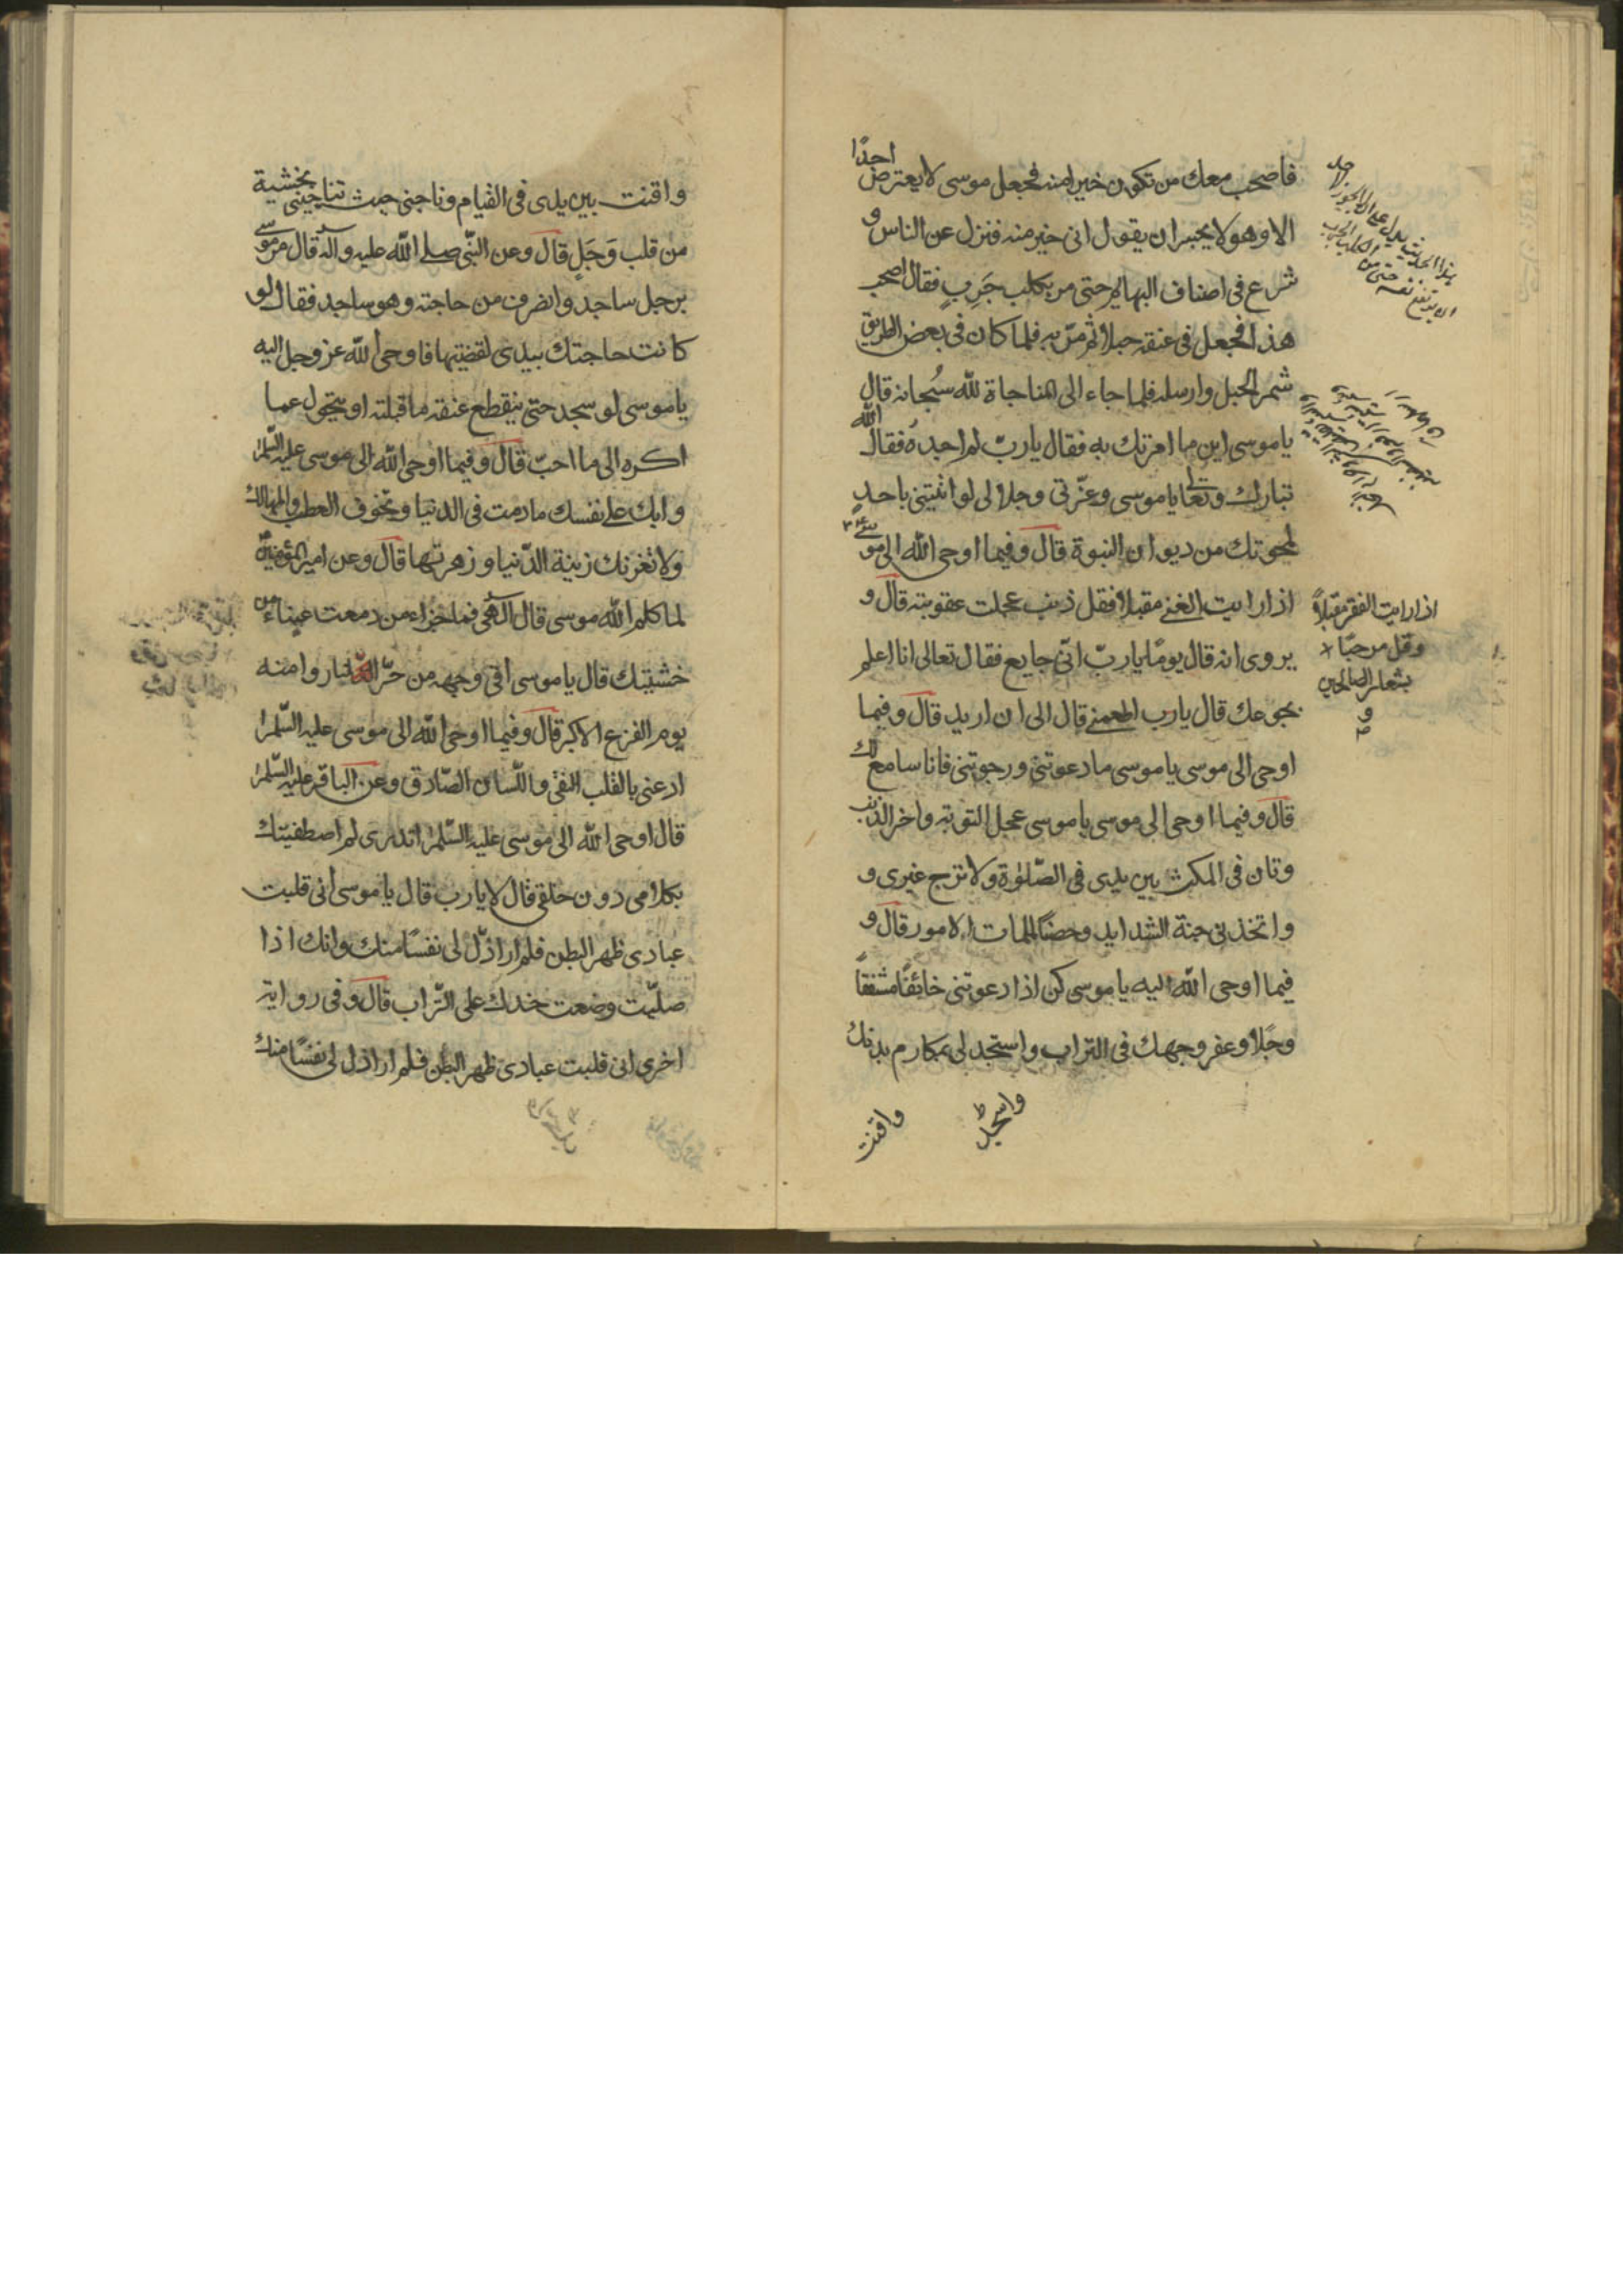 فاصحب معك من تكون خيرا منه فجعل موسى لا يعترض احدًا
الا وهو لا يجسر ان يقول انى خير منه فنزل عن الناس و
شرع فى اصناف البهايم حتى مر بكلب جَرِبٍ فقال اصحب
هذا فجعل فى عنقه حبلا ثم مرّ به فلما كان فى بعض الطريق
شمر الحبل وارسله فلما جاء الى المناجاة لله سُبحانه قال
يا موسى اين ما امرتك به فقال يا ربّ لم اجده فقال الله
تبارك وتعالى يا موسى وعزّتى وجلالى لو اتيتنى باحدٍ
لمحوتك من ديوان النبوة قال وفيما اوحى الله الى موسى
اذا رايت الغنى مقبلا فقل ذنب عجلت عقوبته قال و
اذا رايت الفقر مقبلاً
وقل مرحبًا
بشعار الصالحين
يروى انه قال يومًا يا ربّ انّى جايع فقال تعالى انا اعلم
بجوعك قال يا رب اطعمنى قال الى ان اريد قال وفيما
اوحى الى موسى يا موسى ما دعوتنى ورجوتنى فانا سامع لك
قال وفيما اوحى الى موسى يا موسى عجل التوبة واخر الذنب
وتان فى المكث بين يدى فى الصّلوٰة ولا ترج غيرى و
واتخذنى جنة الشدايد وحصنًا لملمات الامور قال و
فيما اوحى الله اليه يا موسى كن اذا دعوتنى خائفًا مشفقًا
وجَلا وعفر وجهك فى التراب واستجد لى بمكارم بدنك
واسجد
واقنت
واقنت بين يدى فى القيام وناجنى حيث تناجينى بخشية
من قلب وَجَلٍ قال وعن النّبى صلى الله عليه وآله قال مر موسى
برجل ساجد وانصرف من حاجته وهو ساجد فقال لو
كانت حاجتك بيدى لقضيتها فاوحى الله عز وجل اليه
يا موسى لو سجد حتى ينقطع عنقه ما قبلته او يتحول عما
اكره الى ما احبّ قال وفيما اوحى الله الى موسى عليه السّلام
وابك على نفسك ما دمت فى الدنيا وتخوف العطب والمهالك
ولا تغرنك زينة الدّنيا وزهرتها قال وعن امير المؤمنين
لما كلم الله موسى قال الهى فما جزاء من دمعت عيناه من
خشيتك قال يا موسى اقى وجهه من حرّ النار وامنه
يوم الفزع الاكبر قال وفيما اوحى الله الى موسى عليه السّلام
ادعنى بالقلب النقى واللّسان الصّادق وعن الباقر عليه السّلام
قال اوحى الله الى موسى عليه السّلام اتدرى لم اصطفيتك
بكلامى دون خلقى قال لا يا رب قال يا موسى انى قلبت
عبادى ظهر البطن فلم ار اذلّ لى نفسًا منك وانك اذا
صلّيت وضعت خدك على التّراب قال وفى رواية
اخرى انى قلبت عبادى ظهر البطن فلم ار اذل لى نفسًا منك